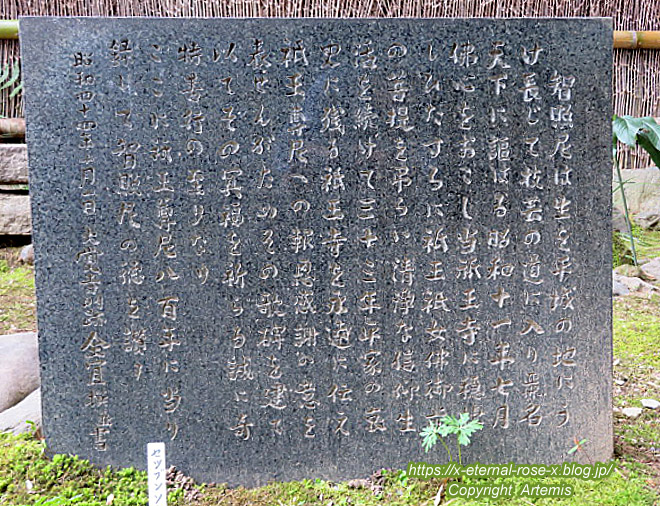 智照尼は生を平城の地にう
け長じて技芸の道に入り嬌名
天下に謳はる昭和十一年七月
佛心をおこし当祇王寺に穏棲
しひたすらに祇王祇女佛御前
の菩提を弔らい清浄な信仰生
活を続けて三十三年平家の哀
史に残る祇王寺を永遠に伝え
祇王尊尼への報恩感謝の意を
表せんがためその歌碑を建て
以てその冥福を祈らる誠に奇
特善行の至りなり
ここに祇王尊尼八百年に当り
録して智照尼の徳を讃す
昭和四十四年 月 日 大覚寺
セツブンソ
https://x-eternal-rose-x.blog.jp/
Copyright Artemis